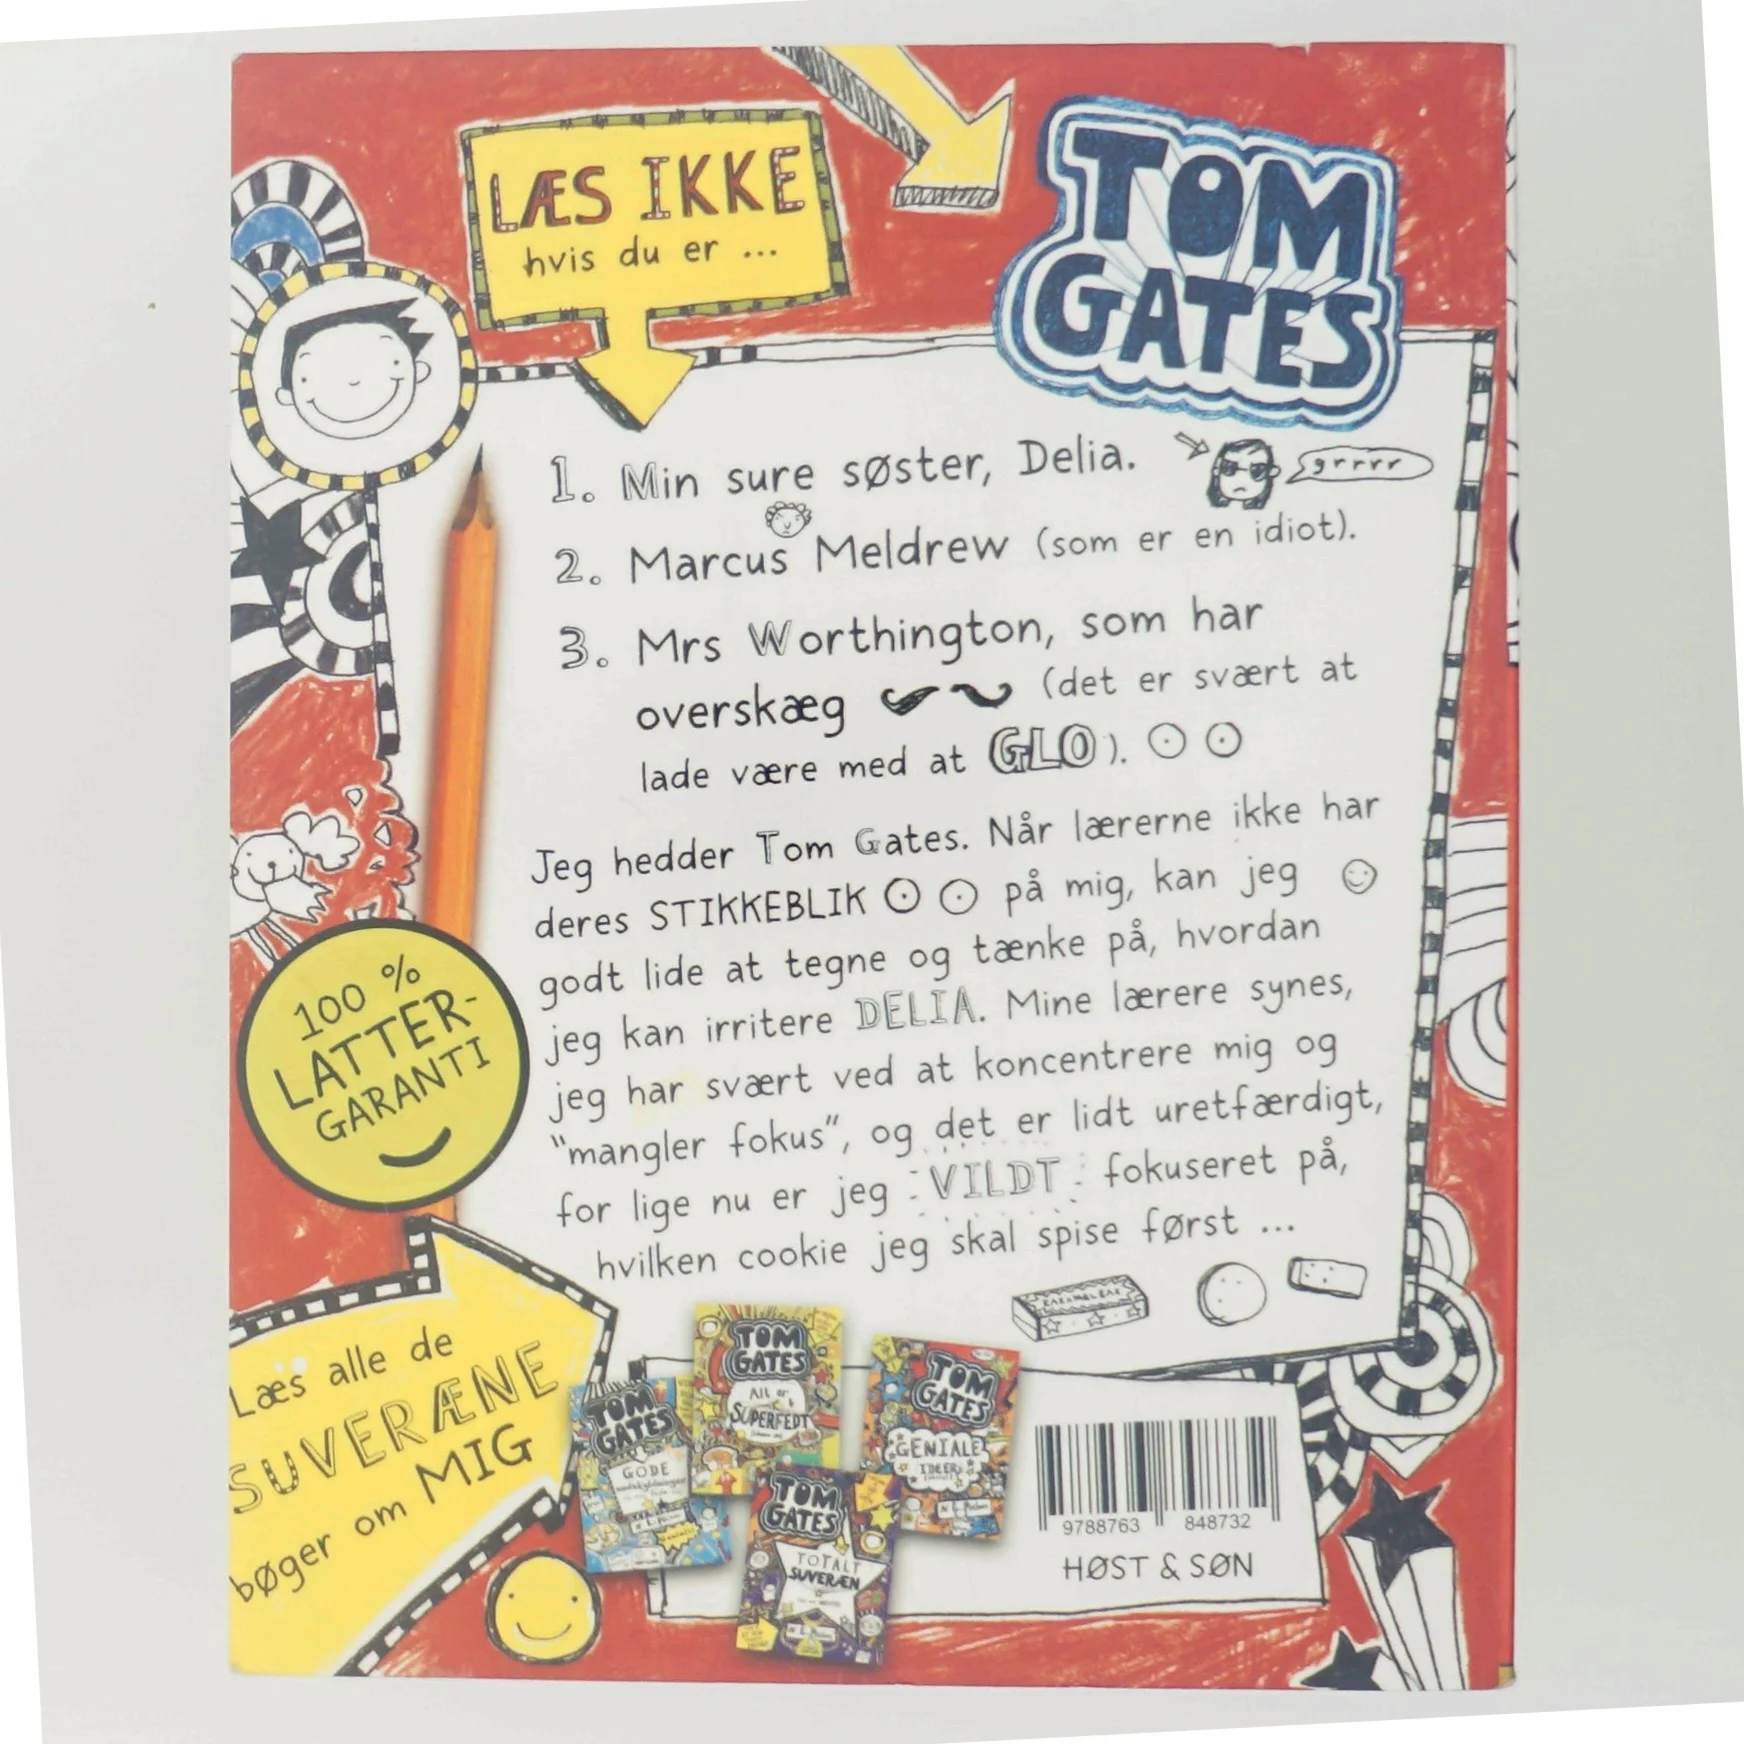 LÆS IKKE
hvis du er ...
TOM
GATES
1. Min sure søster, Delia.
grrrr
2. Marcus Meldrew (som er en idiot).
3. Mrs Worthington, som har
overskæg (det er svært at
lade være med at GLO).
Jeg hedder Tom Gates. Når lærerne ikke har
deres STIKKEBLIK på mig, kan jeg
godt lide at tegne og tænke på, hvordan
jeg kan irritere DELIA. Mine lærere synes,
jeg har svært ved at koncentrere mig og
"mangler fokus", og det er lidt uretfærdigt,
for lige nu er jeg VILDT fokuseret på,
hvilken cookie jeg skal spise først ...
100 %
LATTER-
GARANTI
Læs alle de
SUVERÆNE
bøger om MIG
TOM
GATES
GODE
TOM
GATES
Alt er
SUPERFEDT
TOM
GATES
GENIALE
IDEER
TOM
GATES
TOTALT
SUVERÆN
9788763 848732
HØST & SØN